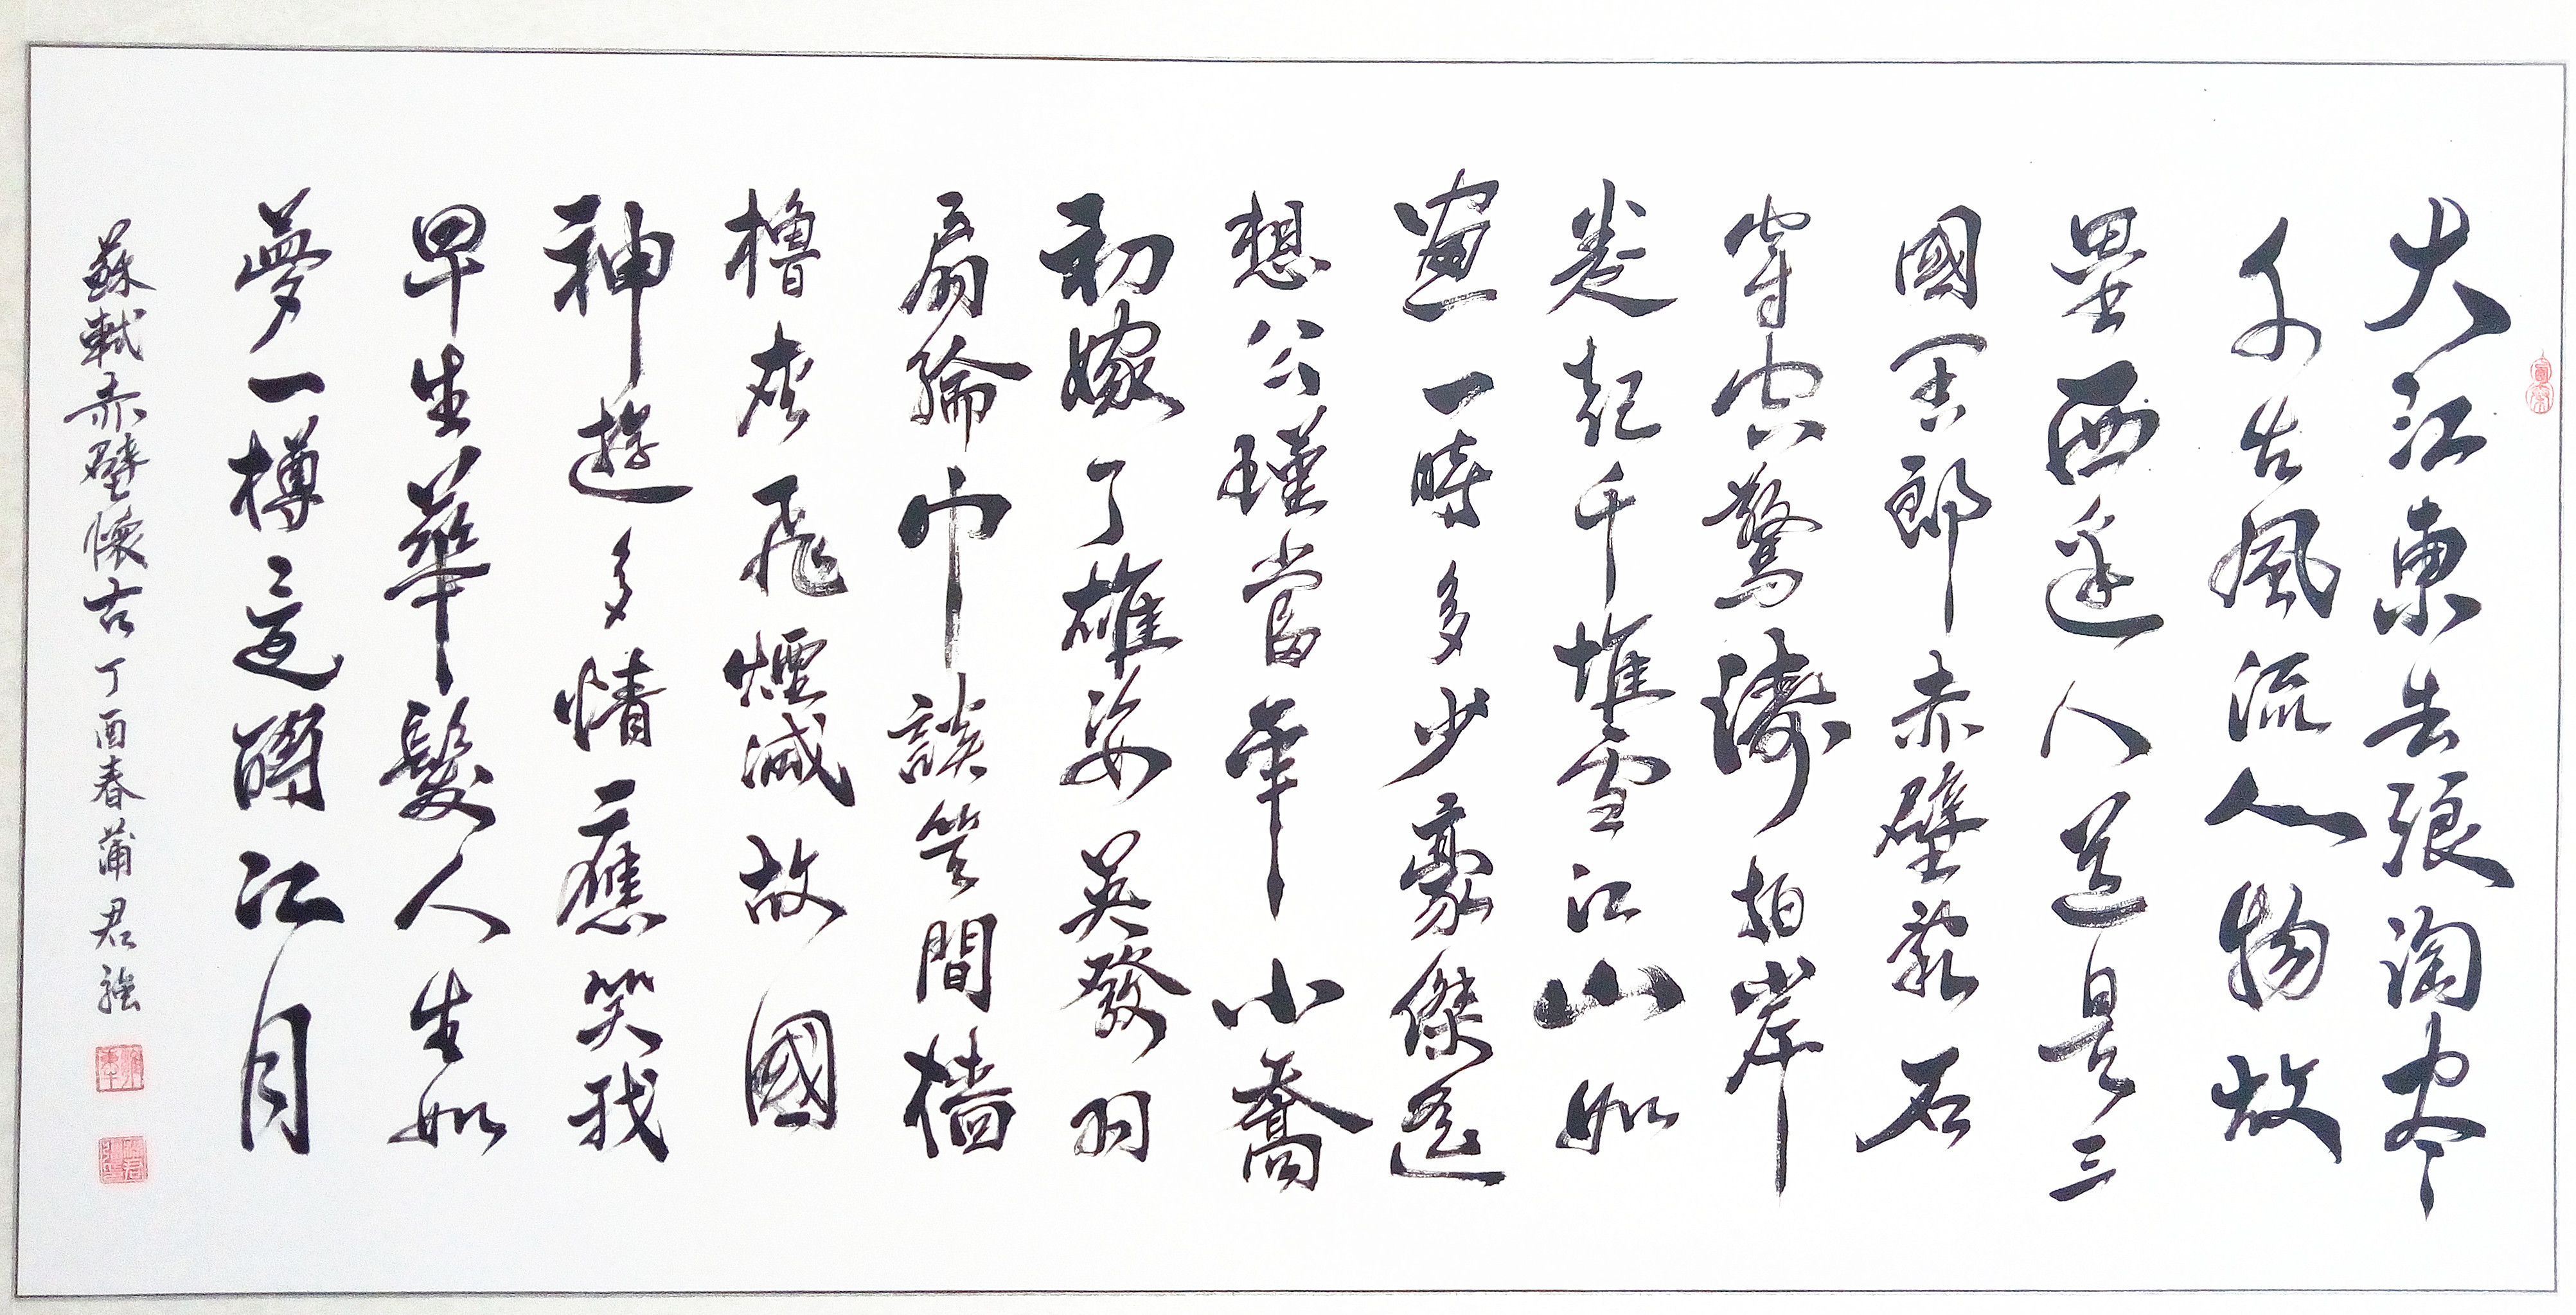 大江東去浪淘盡
千古風流人物故
壘西邊人道是三
國周郎赤壁亂石
穿空驚濤拍岸
捲起千堆雪江山如
畫一時多少豪傑遙
想公瑾當年小喬
初嫁了雄姿英發羽
扇綸巾談笑間檣
櫓灰飛煙滅故國
神遊多情應笑我
早生華髮人生如
夢一樽還酹江月
蘇軾赤壁懷古丁酉春蒲君強